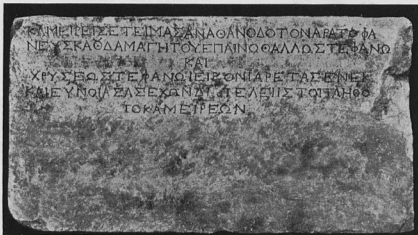 ΚΑΜΕΙΡΕΙΣΕΤΕΙΜΑΣΑΝΑΘΑΝΟΔΟΤΟΝΑΡΑΤΟΦΑ
ΝΕΥΣΚΑΘΔΑΜΑΓΗΤΟΥΕΠΑΙΝΩΘΑΛΛΩΣΤΕΦΑΝΩ
ΚΑΙ
ΧΡΥΣΕΩΣΤΕΦΑΝΩΙΕΙΡΟΝΑΡΕΤΑΣΕΝΕΚ
ΚΑΙΕΥΝΟΙΑΣΑΣΕΧΩΝΔΙΑΤΕΛΕΙΕΙΣΤΟΠΛΗΘΟ
ΤΟΚΑΜΕΙΡΕΩΝ